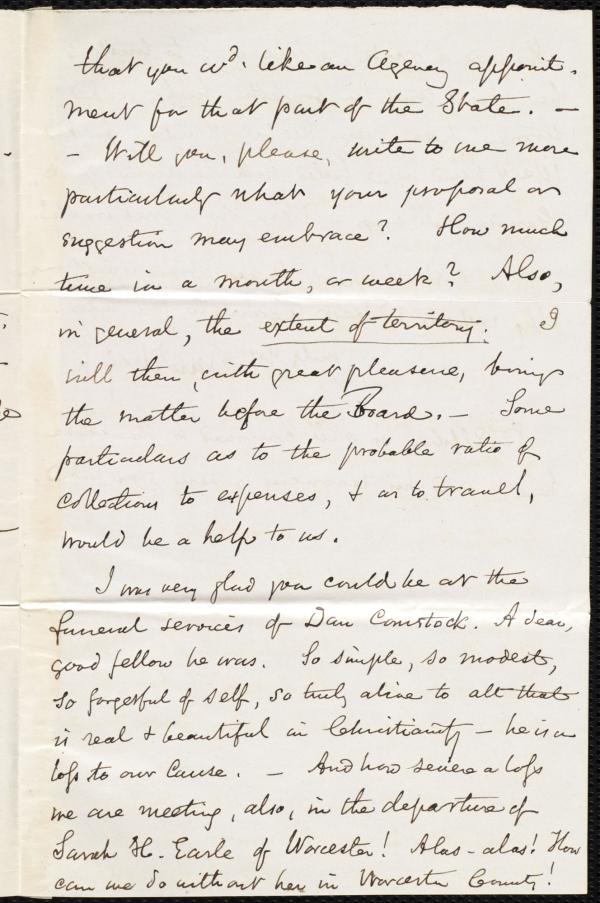 that you wd. like an Agency appoint-
ment for that part of the State. —
— Will you, please, write to me more
particularly what your proposal or
suggestion may embrace? How much
time in a month, or week? Also,
in general, the extent of territory. I
will then, with great pleasure, bring
the matter before the Board. — Some
particulars as to the probable ratio of
collections to expenses, & as to travel,
would be a help to us.
I was very glad you could be at the
funeral services of Dan Comstock. A dear,
good fellow he was. So simple, so modest,
so forgetful of self, so truly alive to all that
is real & beautiful in Christianity — he is a
loss to our Cause. — And how severe a loss
we are meeting, also, in the departure of
Sarah H. Earle of Worcester! Alas - alas! How
can we do without her in Worcester County!